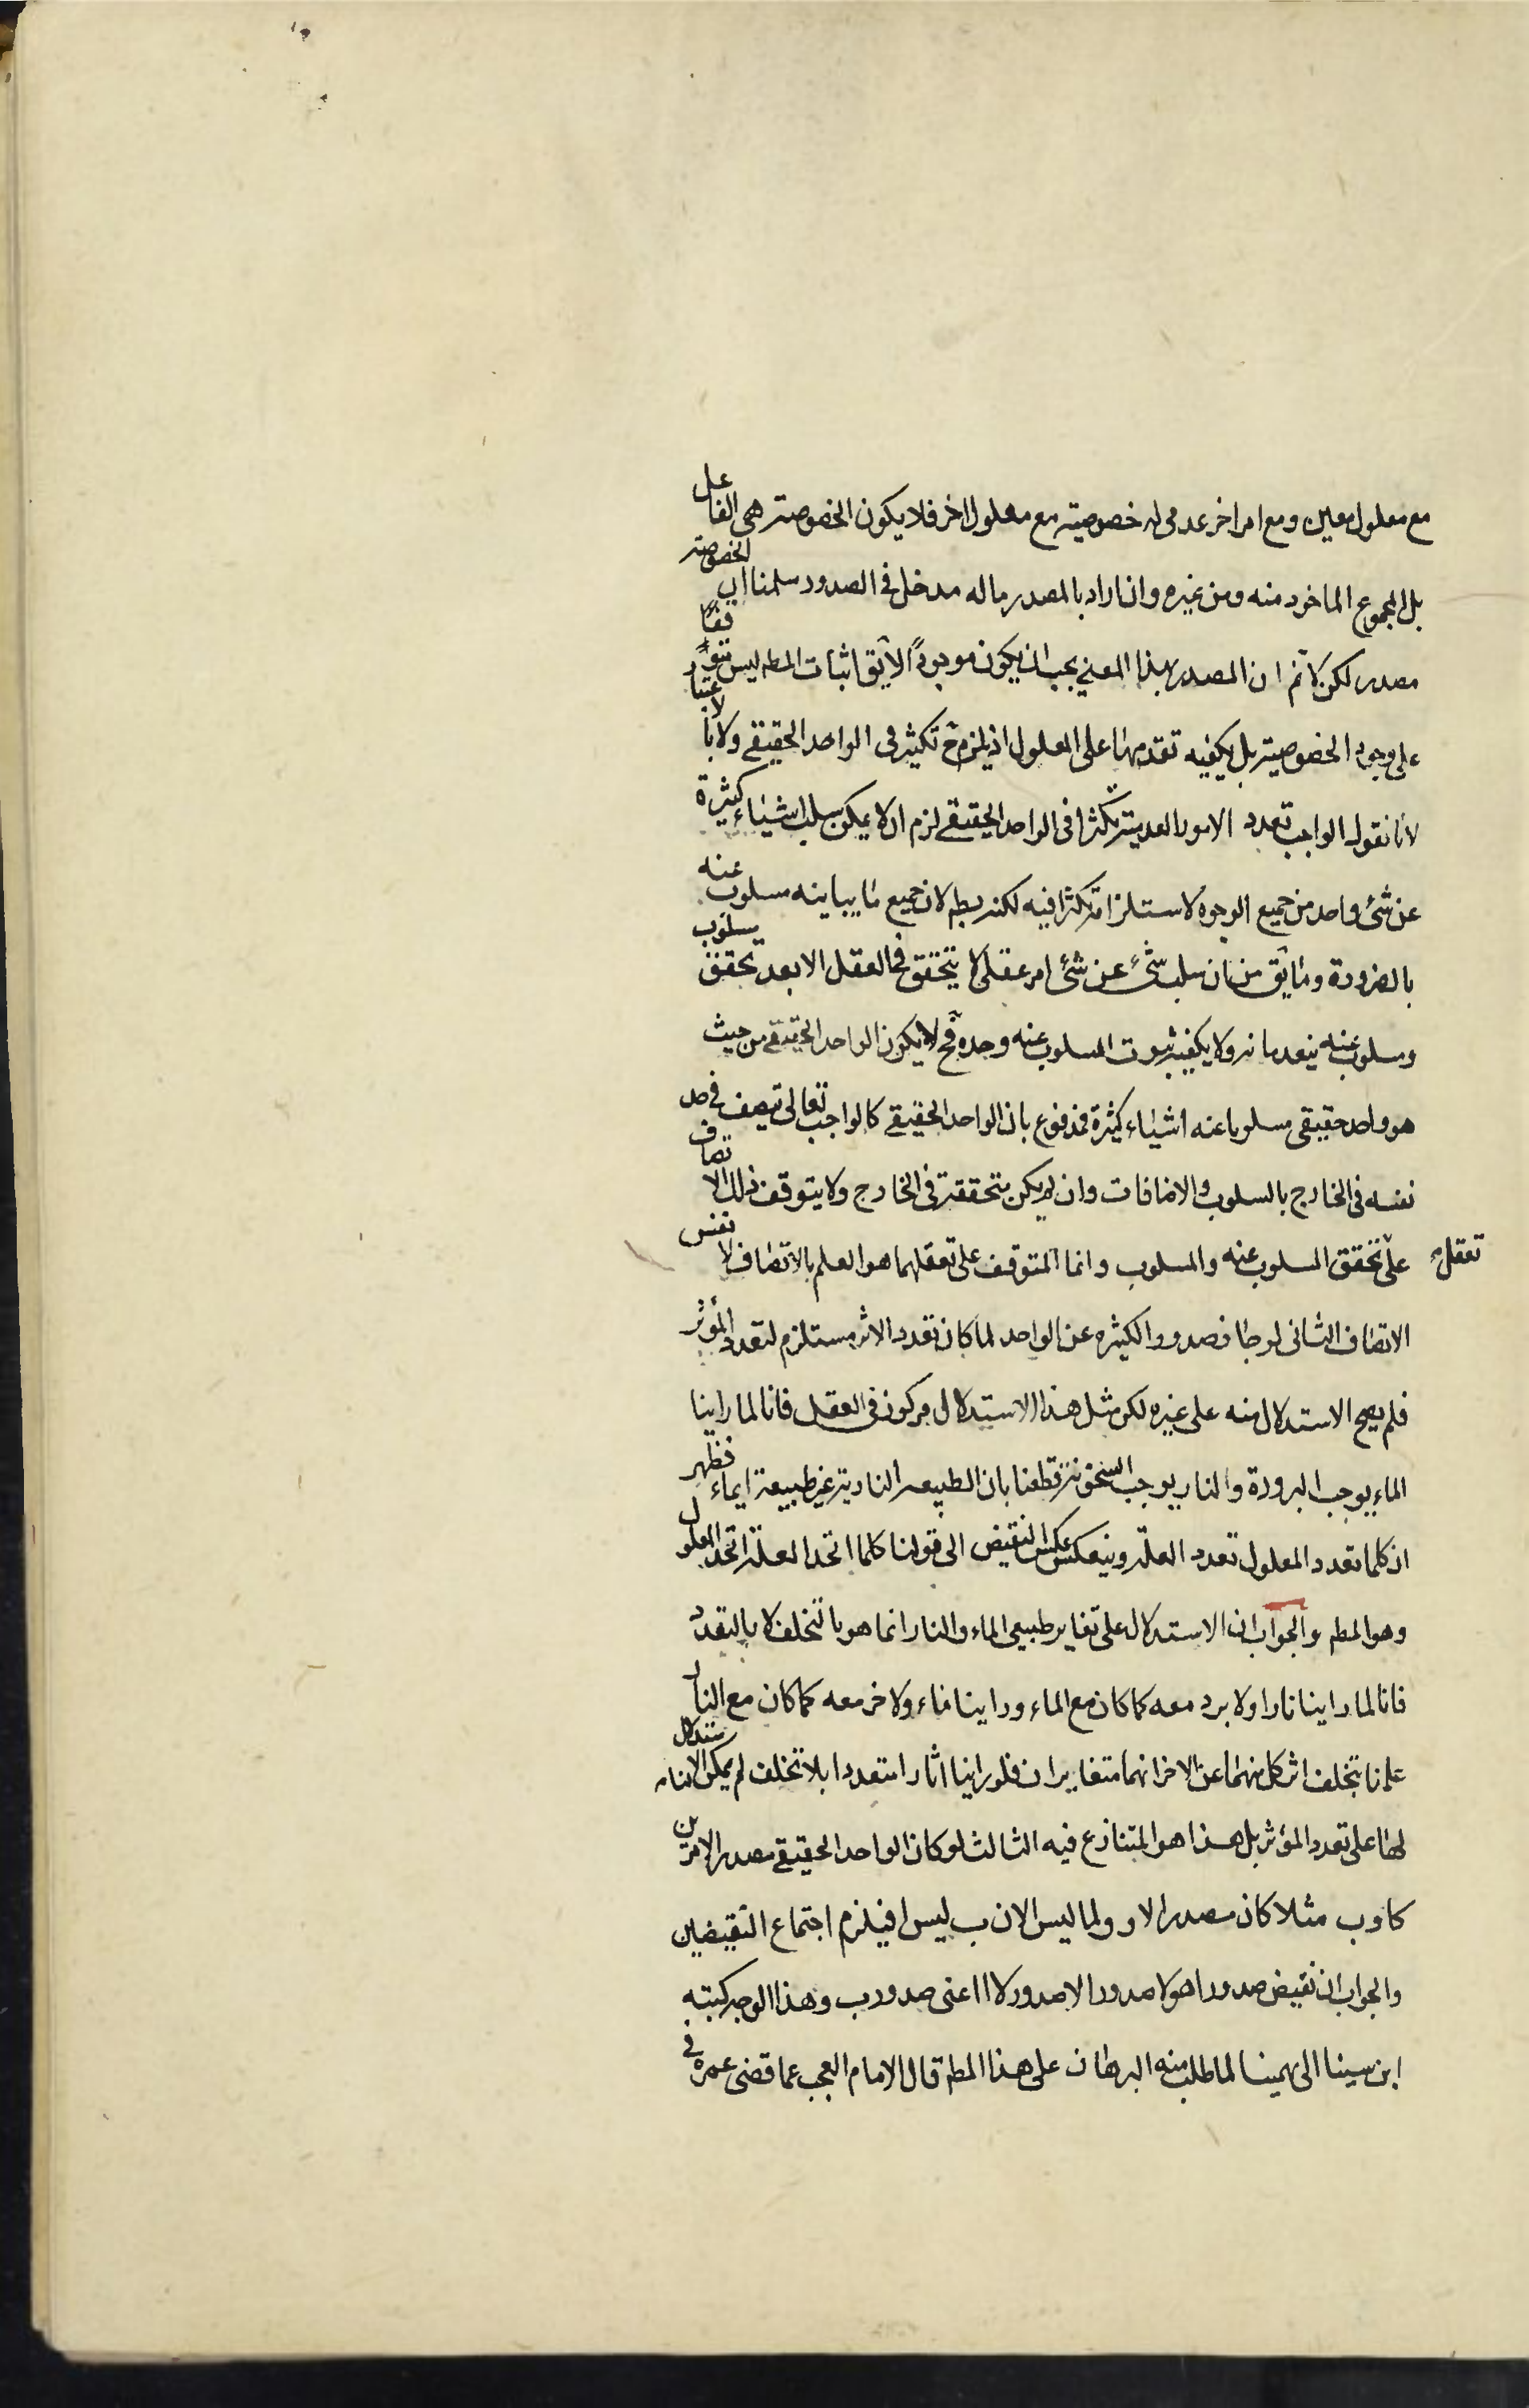 مع معلول معين ومع امر اخر عدمي له خصوصية مع معلول اخر فلا يكون الخصوصية هي الفاعل
بل المجموع الماخوذ منه ومن غيره وان اراد بالمصدر ما له مدخل في الصدور سلمنا ان الخصوصية
مصدر لكن لانم ان المصدر بهذا المعني يجب ان يكون موجودًا لا يق اثبات المط ليس متوقفًا
على وجود الخصوصية بل يكفيه تقدمها على المعلول اذ يلزم ح تكثر في الواحد الحقيقے ولا باعتبار
لانا نقول لو اوجب تعدد الامور العدمية تكثرا في الواحد الحقيقے لزم ان لا يمكن سلب اشياء كثيرة
عن شئ واحد من جميع الوجوه لاستلزامه تكثرا فيه لكنه بط لان جميع ما يباينه مسلوب عنه
بالضرورة وما يق من ان سلب شئ عن شئ امر عقلي لا يتحقق في العقل الا بعد تحقق مسلوب
ومسلوب عنه يتعدمانه ولا يكفيه ثبوت المسلوب عنه وحده فح لا يكون الواحد الحقيقے من حيث
هو واحد حقيقي مسلوبا عنه اشياء كثيرة فمدفوع بان الواحد الحقيقے كالواجب تعالى يتصف في حد
نفسه في الخارج بالسلوب والاضافات وان لم يكن متحققة في الخارج ولا يتوقف ذلك الاتصاف
على تحقق المسلوب عنه والمسلوب وانما المتوقف على تعقلهما هو العلم بالاتصاف لا نفس
تعقل
الاتصاف الثاني لو جاز صدور الكثيره عن الواحد لما كان تعدد الاثر مستلزم لتعدد المؤثر
فلم يصح الاستدلال منه على غيره لكن مثل هذا الاستدلال مركوز في العقل فانا لما راينا
الماء يوجب البرودة والنار يوجب السخونة قطعنا بان الطبيعه النارية غير طبيعة الماء فظهر
ان كلما تعدد المعلول تعدد العلة وينعكس عكس النقيض الى قولنا كلما اتحد العلة اتحد المعلول
وهو المط والجواب ان الاستدلال على تغاير طبيعي الماء والنار انما هو بالتخلف لا بالتعدد
فانا لما راينا نارا ولا برد معه كما كان مع الماء وراينا ماء ولا حر معه كما كان مع النار
علمنا بتخلف اثر كل منهما عن الاخر انهما متغايران فلو راينا اثارا متعددا بلا تخلف لم يمكن الاستدلال
لها على تعدد المؤثر بل هذا هو المتنازع فيه الثالث لو كان الواحد الحقيقے مصدر الامرين
كا وب مثلا كان مصدر الا ولما ليس ا لان ب ليس ا فيلزم اجتماع النقيضين
والجواب ان نقيض صدور ا هو لا صدور ا لا صدور لا ا اعنى صدور ب وهذا الوجه كتبه
ابن سينا الى بهمينا لما طلب منه البرهان على هذا المط قال الامام العجب عما قضى عمره في